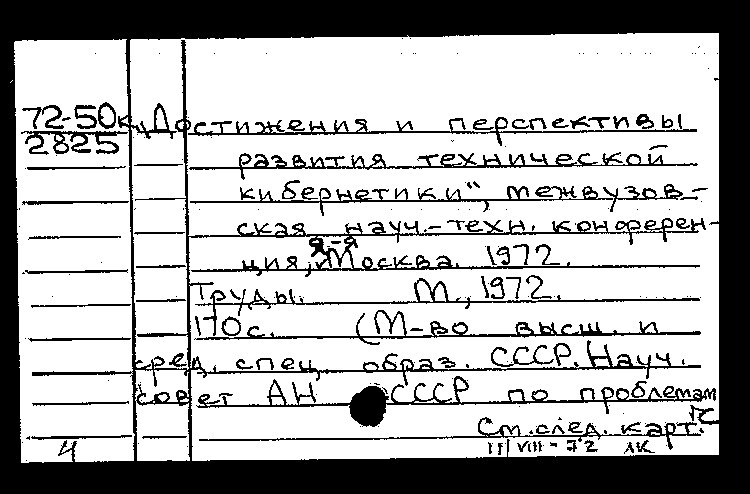 72-50к „Достижения и перспективы
2825
развития технической
кибернетики“, межвузов-
ская науч.-техн. конферен-
ция, Москва. 1972.
Труды. М., 1972.
170 с. (М-во высш. и
сред. спец. образ. СССР. Науч.
совет АН СССР по проблемам
См. след. карт.
4 11/VIII-72 АК